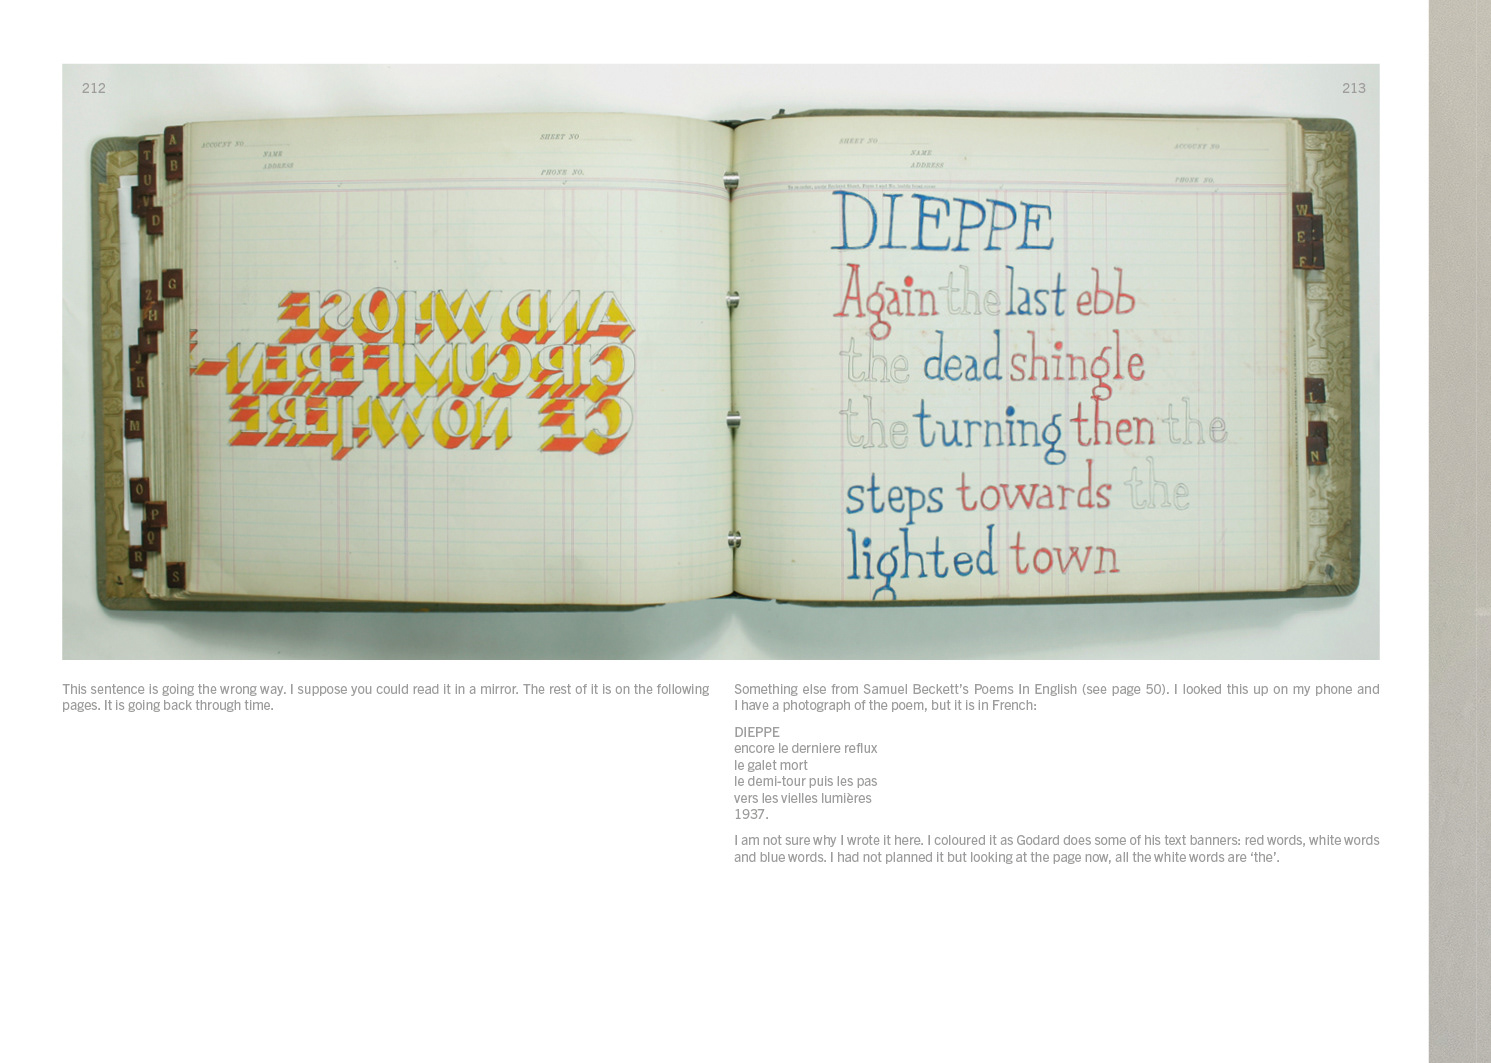 212
213
ACCOUNT NO.
SHEET NO
NAME
ADDRESS
PHONE NO.
SHEET NO.
ACCOUNT NO.
NAME
ADDRESS
PHONE NO.
A
B
T
U
V
D
G
Z
H
I
J
K
M
O
P
Q
R
S
AND WHOSE
CIRCUMFEREN-
CE NOWHERE
DIEPPE
Again the last ebb
the dead shingle
the turning then the
steps towards the
lighted town
W
E
F
L
N
This sentence is going the wrong way. I suppose you could read it in a mirror. The rest of it is on the following
pages. It is going back through time.
Something else from Samuel Beckett's Poems In English (see page 50). I looked this up on my phone and
I have a photograph of the poem, but it is in French:
DIEPPE
encore le derniere reflux
le galet mort
le demi-tour puis les pas
vers les vielles lumières
1937.
I am not sure why I wrote it here. I coloured it as Godard does some of his text banners: red words, white words
and blue words. I had not planned it but looking at the page now, all the white words are ‘the’.